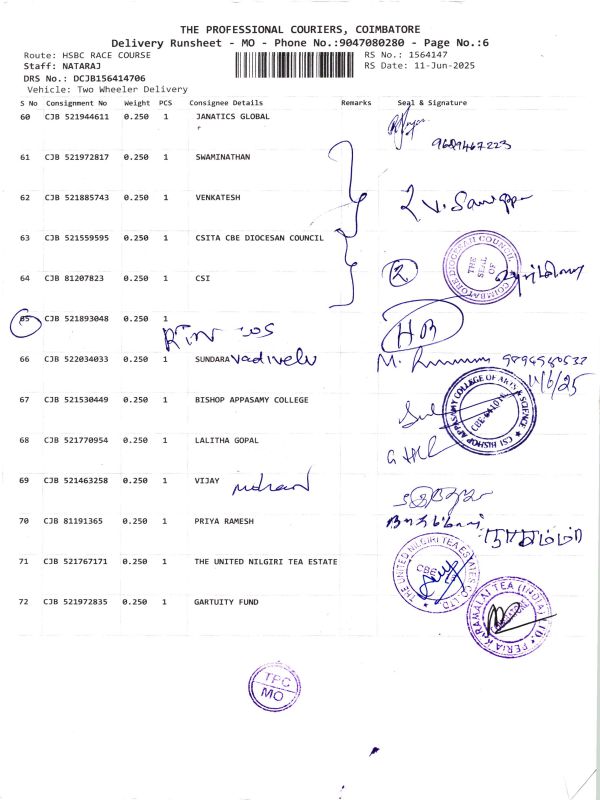 THE PROFESSIONAL COURIERS, COIMBATORE
Delivery Runsheet - MO - Phone No.:9047080280 - Page No.:6
Route: HSBC RACE COURSE RS No.: 1564147
Staff: NATARAJ RS Date: 11-Jun-2025
DRS No.: DCJB156414706
Vehicle: Two Wheeler Delivery
S No Consignment No Weight PCS Consignee Details Remarks Seal & Signature
60 CJB 521944611 0.250 1 JANATICS GLOBAL
9689467223
61 CJB 521972817 0.250 1 SWAMINATHAN
62 CJB 521885743 0.250 1 VENKATESH
63 CJB 521559595 0.250 1 CSITA CBE DIOCESAN COUNCIL
COIMBATORE DIOCESAN COUNCIL THE SEAL OF
64 CJB 81207823 0.250 1 CSI 2.
65 CJB 521893048 0.250 1
66 CJB 522034033 0.250 1 SUNDARAvadivelu
11/6/25
67 CJB 521530449 0.250 1 BISHOP APPASAMY COLLEGE
CSI BISHOP APPASAMY COLLEGE OF ARTS & SCIENCE
68 CJB 521770954 0.250 1 LALITHA GOPAL
69 CJB 521463258 0.250 1 VIJAY
70 CJB 81191365 0.250 1 PRIYA RAMESH
71 CJB 521767171 0.250 1 THE UNITED NILGIRI TEA ESTATE
THE UNITED NILGIRI TEA ESTATES CO. LTD. CBE
72 CJB 521972835 0.250 1 GARTUITY FUND
PERIA KARAMALAI TEA (INDIA) LTD.
TPC
MO